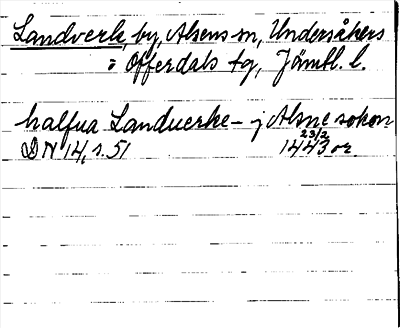 Landverk, by, Alsens sn, Undersåkers
o Offerdals tg, Jämtl. l.
halfua Landuerke – j Alsne sokon
DN 14, s. 51 23/2 1443 or.